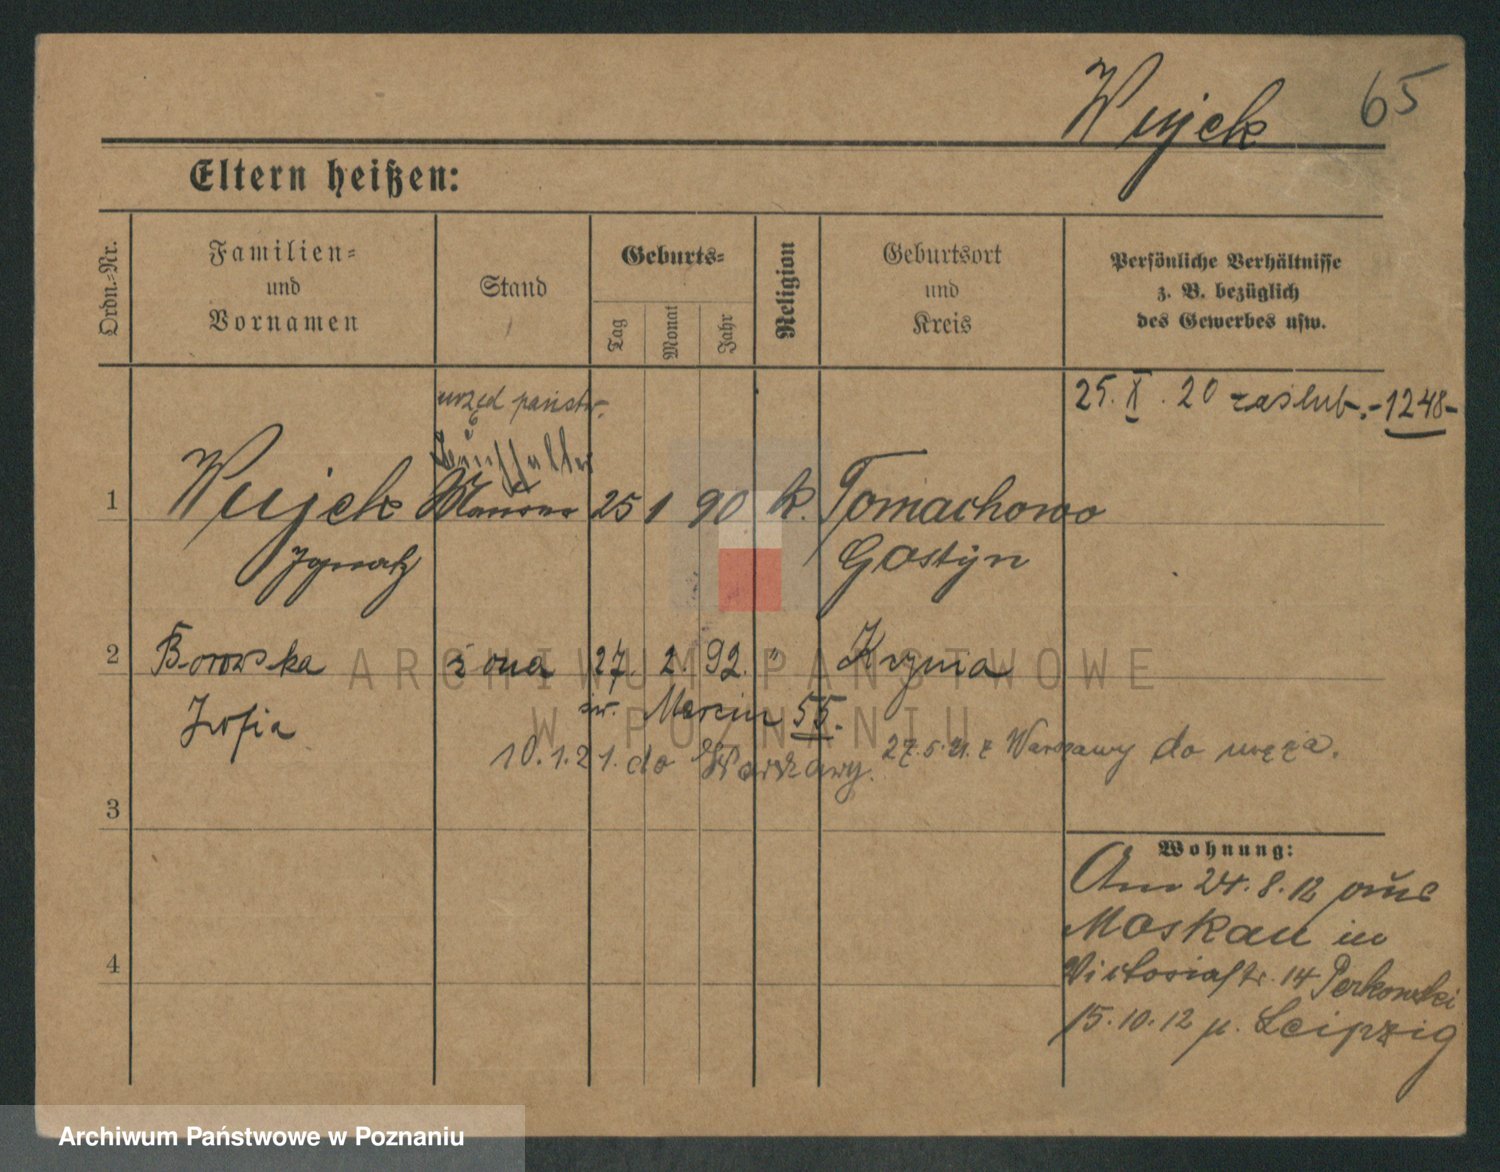 Wujek 65
Eltern heißen:
Ordn.-Nr.
Familien-
und
Vornamen
Stand
Geburts-
Tag
Monat
Jahr
Religion
Geburtsort
und
Kreis
Persönliche Verhältnisse
z. B. bezüglich
des Gewerbes usw.
25. X. 20 zaślub. -1248-
urzęd państw.
1 Wujek 25 1 90 k. Tomachowo
Ignatz Gostyn
2 Borowska żona 27. 2. 92. " Krynia
Zofia
św. Marcin 55.
10.1.21. do Warszawy.
27.5.21. z Warszawy do męża.
3
4
Wohnung:
Am 24.8.12 aus
Moskau in
Victoriastr. 14 Perkowski
15.10.12 n. Leipzig
ARCHIWUM PAŃSTWOWE
W POZNANIU
Archiwum Państwowe w Poznaniu